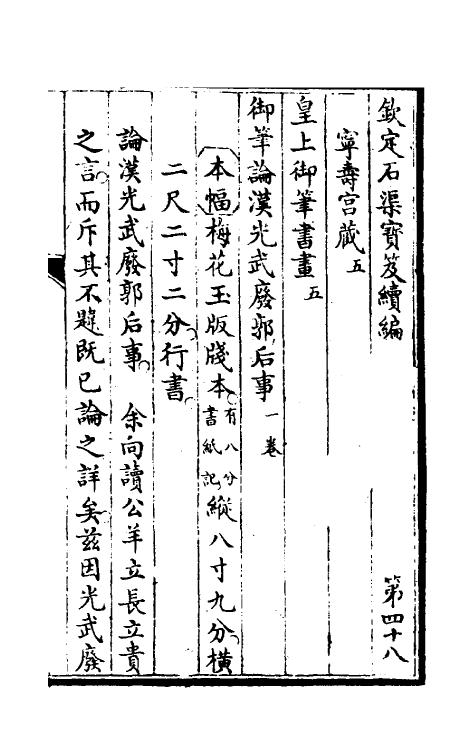 欽定石渠寶笈續編　第四十八
寧壽宮藏五
皇上御筆書畫五
御筆論漢光武廢郭后事一卷
本幅梅花玉版牋本有八分書紙記縱八寸九分橫
二尺二寸二分行書
論漢光武廢郭后事　余向讀公羊立長立貴
之言而斥其不韙既已論之詳矣茲因光武廢